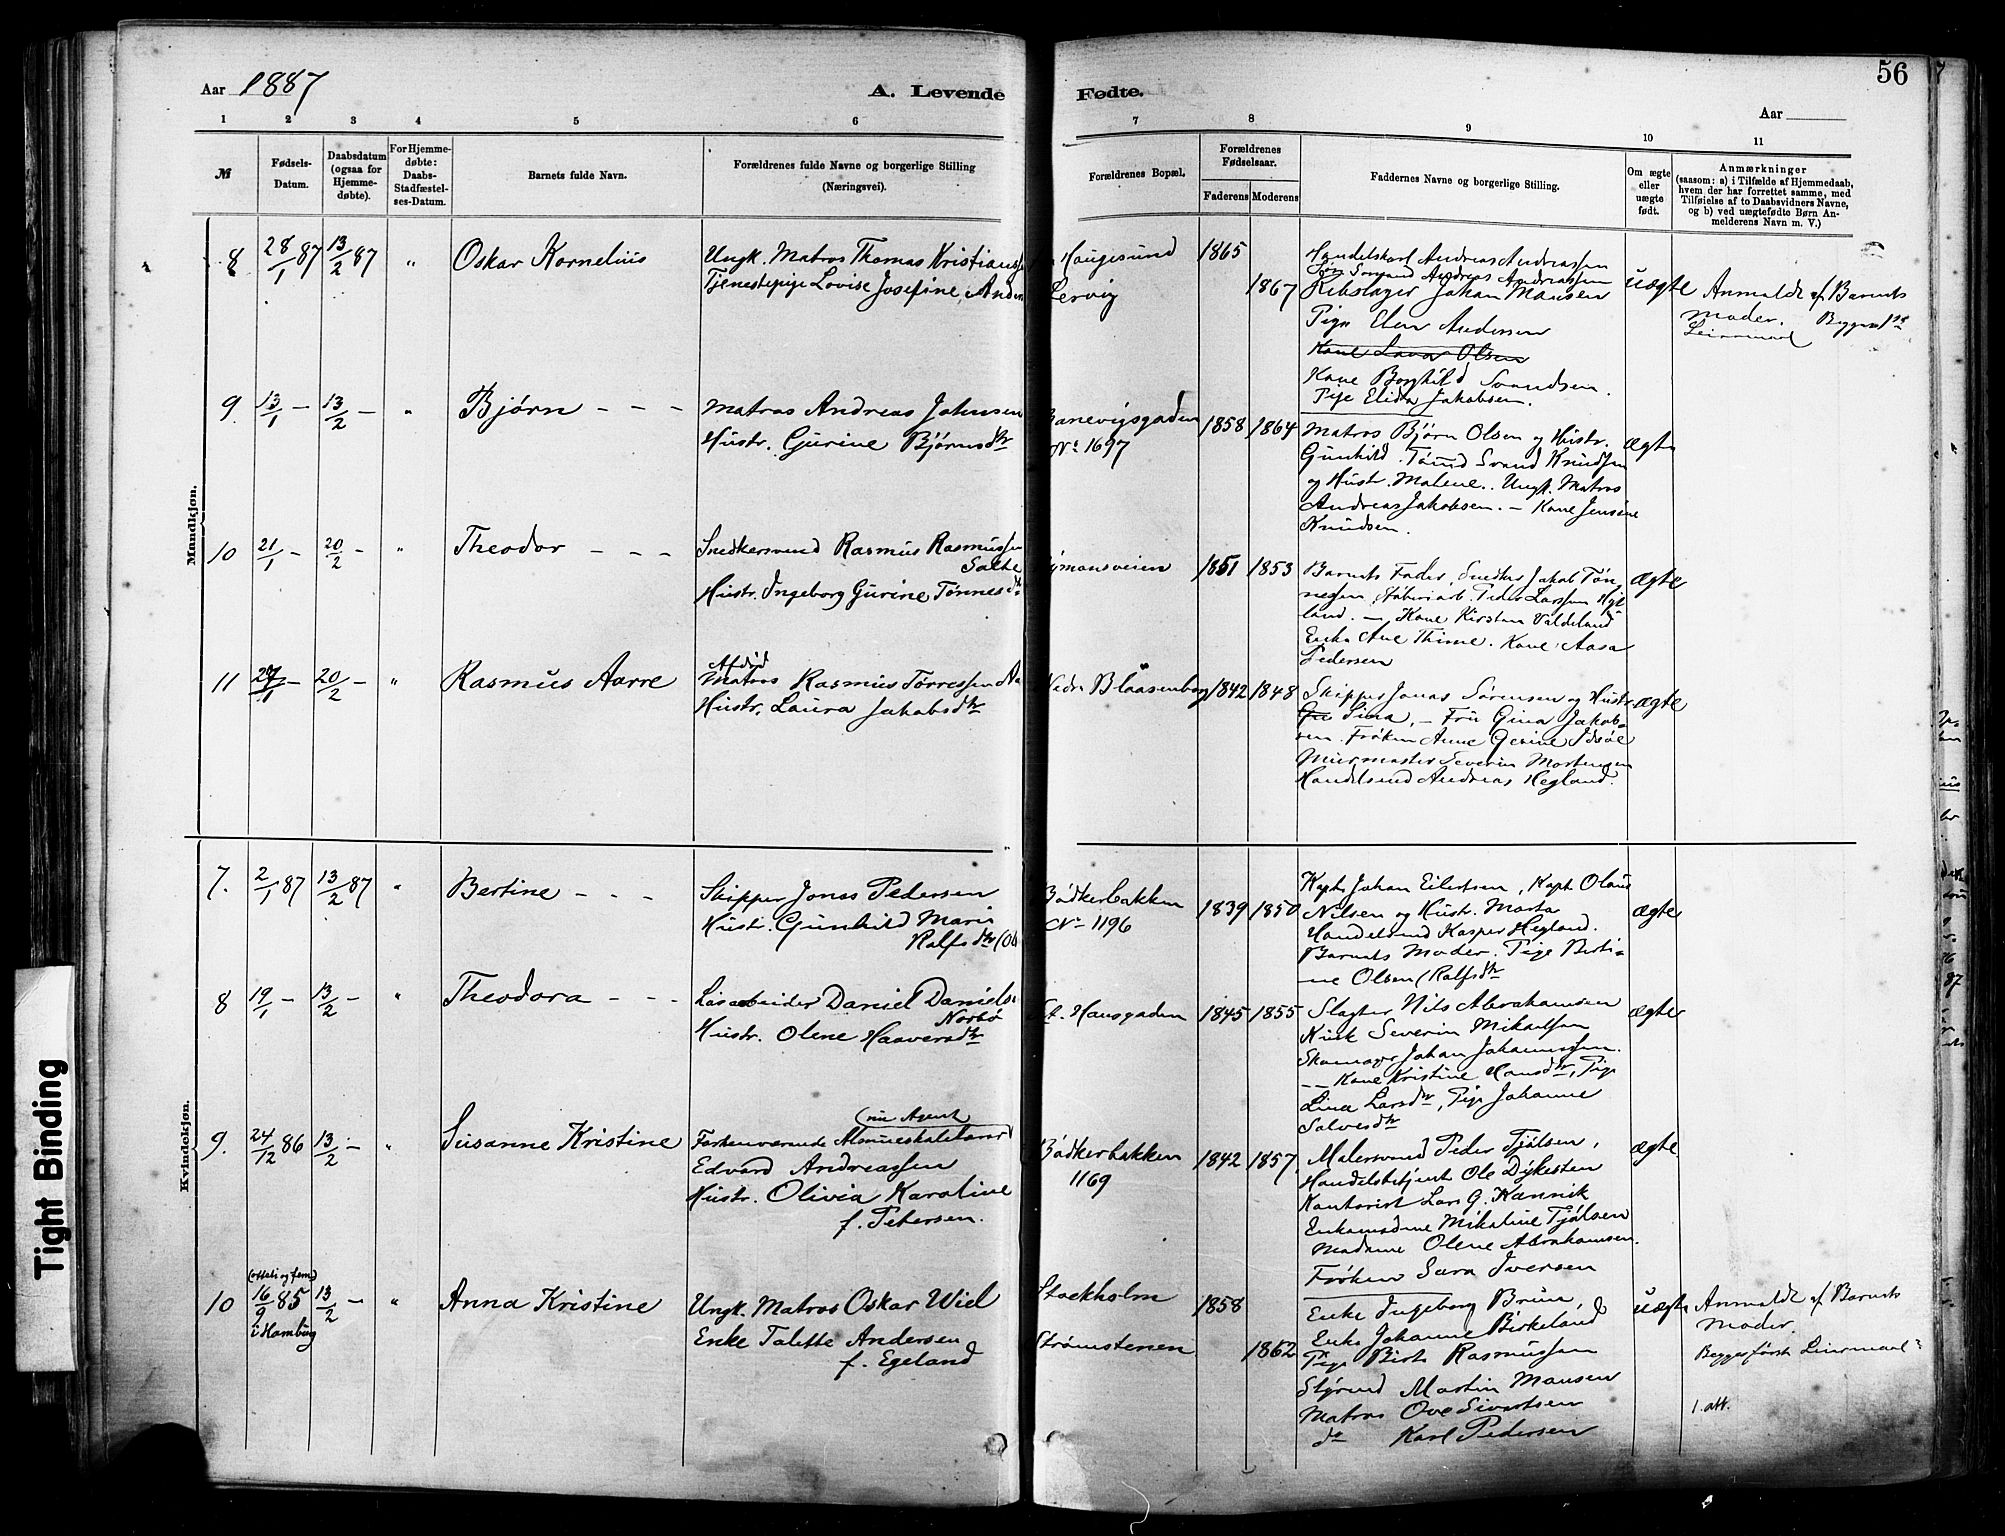 Aar 1887
A. Levende Fødte.
56
Aar
1 2 3 4 5 6 7 8 9 10 11
№
Fødsels-
Datum.
Daabsdatum
(ogsaa for
Hjemme-
døbte).
For Hjemme-
døbte:
Daabs-
Stadfæstel-
ses-Datum.
Barnets fulde Navn.
Forældrenes fulde Navne og borgerlige Stilling
(Næringsvei).
Forældrenes Bopæl.
Forældrenes
Fødselsaar.
Faderens Moderens
Faddernes Navne og borgerlige Stilling.
Om ægte
eller
uægte
født.
Anmærkninger
(saasom: a) i Tilfælde af Hjemmedaab,
hvem der har forrettet samme, med
Tilføielse af to Daabsvidners Navne,
og b) ved uægtefødte Børn An-
melderens Navn m. V.)
Mandkjøn.
8 28/1 87 13/2 87 " Oskar Kornelius
Ungk. Matros Thomas Kristianss
Tjenestepige Lovise Josefine, Ander
Haugesund
Lervig
1865
1867
Handelskarl Andreas Andreassen
Andreas Andreassen
Rebslager Johan Mansen
Pige Elen Andersen
Kone Olsen
Kone Borghild Svendsen.
Pige Elida Jakobsen.
uægte
Anmeldt af Barnets
Moder. Begges 1ste
Leiermaal
9. 13/1 — 13/2 — " Björn - - -
Matros Andreas Johnsen
Hustr. Gurine Björnsdtr
Banevigsgaden
No 1697
1858 1864
Matros Björn Olsen og Hustr.
Gunhild. Tømd Svend Knudsen
og Hustr. Malene. Ungk. Matros
Andreas Jakobsen. — Kone Jensine
Knudsen.
ægte
10 21/1 — 20/2 — " Theodor - - -
Snedkersvend Rasmus Rasmussen
Salte
Hustr. Ingeborg Gurine Tönnesd
ymansveien
1851 1853
Barnets Fader, Snedker Jakob Tön-
nesen, Peder Larssen Hyl-
land. — Kone Kirsten Valdeland
Enke Ane Thime. Kone Aasa
Pedersen
ægte
11 27/1 — 20/2 — " Rasmus Aarre
Afdöd
Matros Rasmus Torressen Aa
Hustr. Laura Jakobsdtr
Nedre Blaasenborg
1842 1848
Skipper Jonas Sörensen og Hustr
Sina, — Fru Gina Jakob-
sen. Fröken Anne Gesine Idsöe
Murmester Severin Mortensen
Handelsmd Andreas Hegland.
ægte
Kvindekjøn.
7. 2/1 87 13/2 87 " Bertine - - -
Skipper Jonas Pedersen
Hustr. Gunhild Marie
Ralfsdtr (Ol
Bödkerbakken
No 1196
1839 1850
Kapt. Johan Eilertsen, Kapt Olaus
Nilsen og Hustr. Marta
Handelsmd Kasper Hegland.
Barnets Moder. Pige Berti-
ne Olsen (Ralfsdtr
ægte
8 19/1 — 13/2 — " Theodora - - -
Lösarbeider Daniel Daniels
Norbö
Hustr. Olene Haaversdtr
St. Hansgaden
1845 1855
Slagter Nils Abrahamsen
Kusk Severin Mikaelsen
Skomager Johan Johannessen.
— Kone Kristine Hansdtr, Pige
Lina Larsdtr, Pige Johanne
Salvesdtr
ægte
9. 24/12 86 13/2 — " Susanne Kristine
(nu Agent
Forhenværende
Edvard Andreassen
Hustr. Olivia Karoline
f. Petersen.
Bödkerbakken
1169
1842 1857
Malersvend Peder Tjölsen,
Handelsbetjent Ole Dykesten
Kontorist Lars G. Kannik
Enkemadme Mikaline Tjölsen
Madame Olene Abrahamsen.
Fröken Sara Iversen
ægte
10 (otteti og fem) 16/9 85 i Hamburg 13/2 — " Anna Kristine
Ungk. Matros Oskar Wiel
Enke Talette Andersen
f. Egeland
Stockholm
Strömstenen
1858
1862
Enke Ingeborg Brun
Enke Johanne Birkeland
Pige Berte Rasmussen
Styrmd Martin Mansen
Matros Ove Sivertsen
do Karl Pedersen
uægte
Anmeldt af Barnets
Moder.
Begges förste Leiermaal
1. att.
Tight Binding